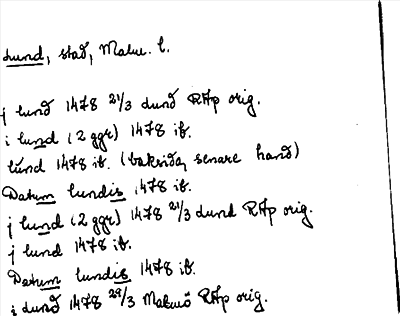 Lund, stad, Malm. l.
j lund 1478 21/3 Lund RAp orig.
i lund (2 ggr) 1478 ib.
lund 1478 ib. (baksida, senare hand)
Datum lundis 1478 ib.
j lund (2 ggr) 1478 21/3 Lund RAp orig.
j lund 1478 ib.
Datum lundis 1478 ib.
i Lund 1478 29/3 Malmö RAp orig.